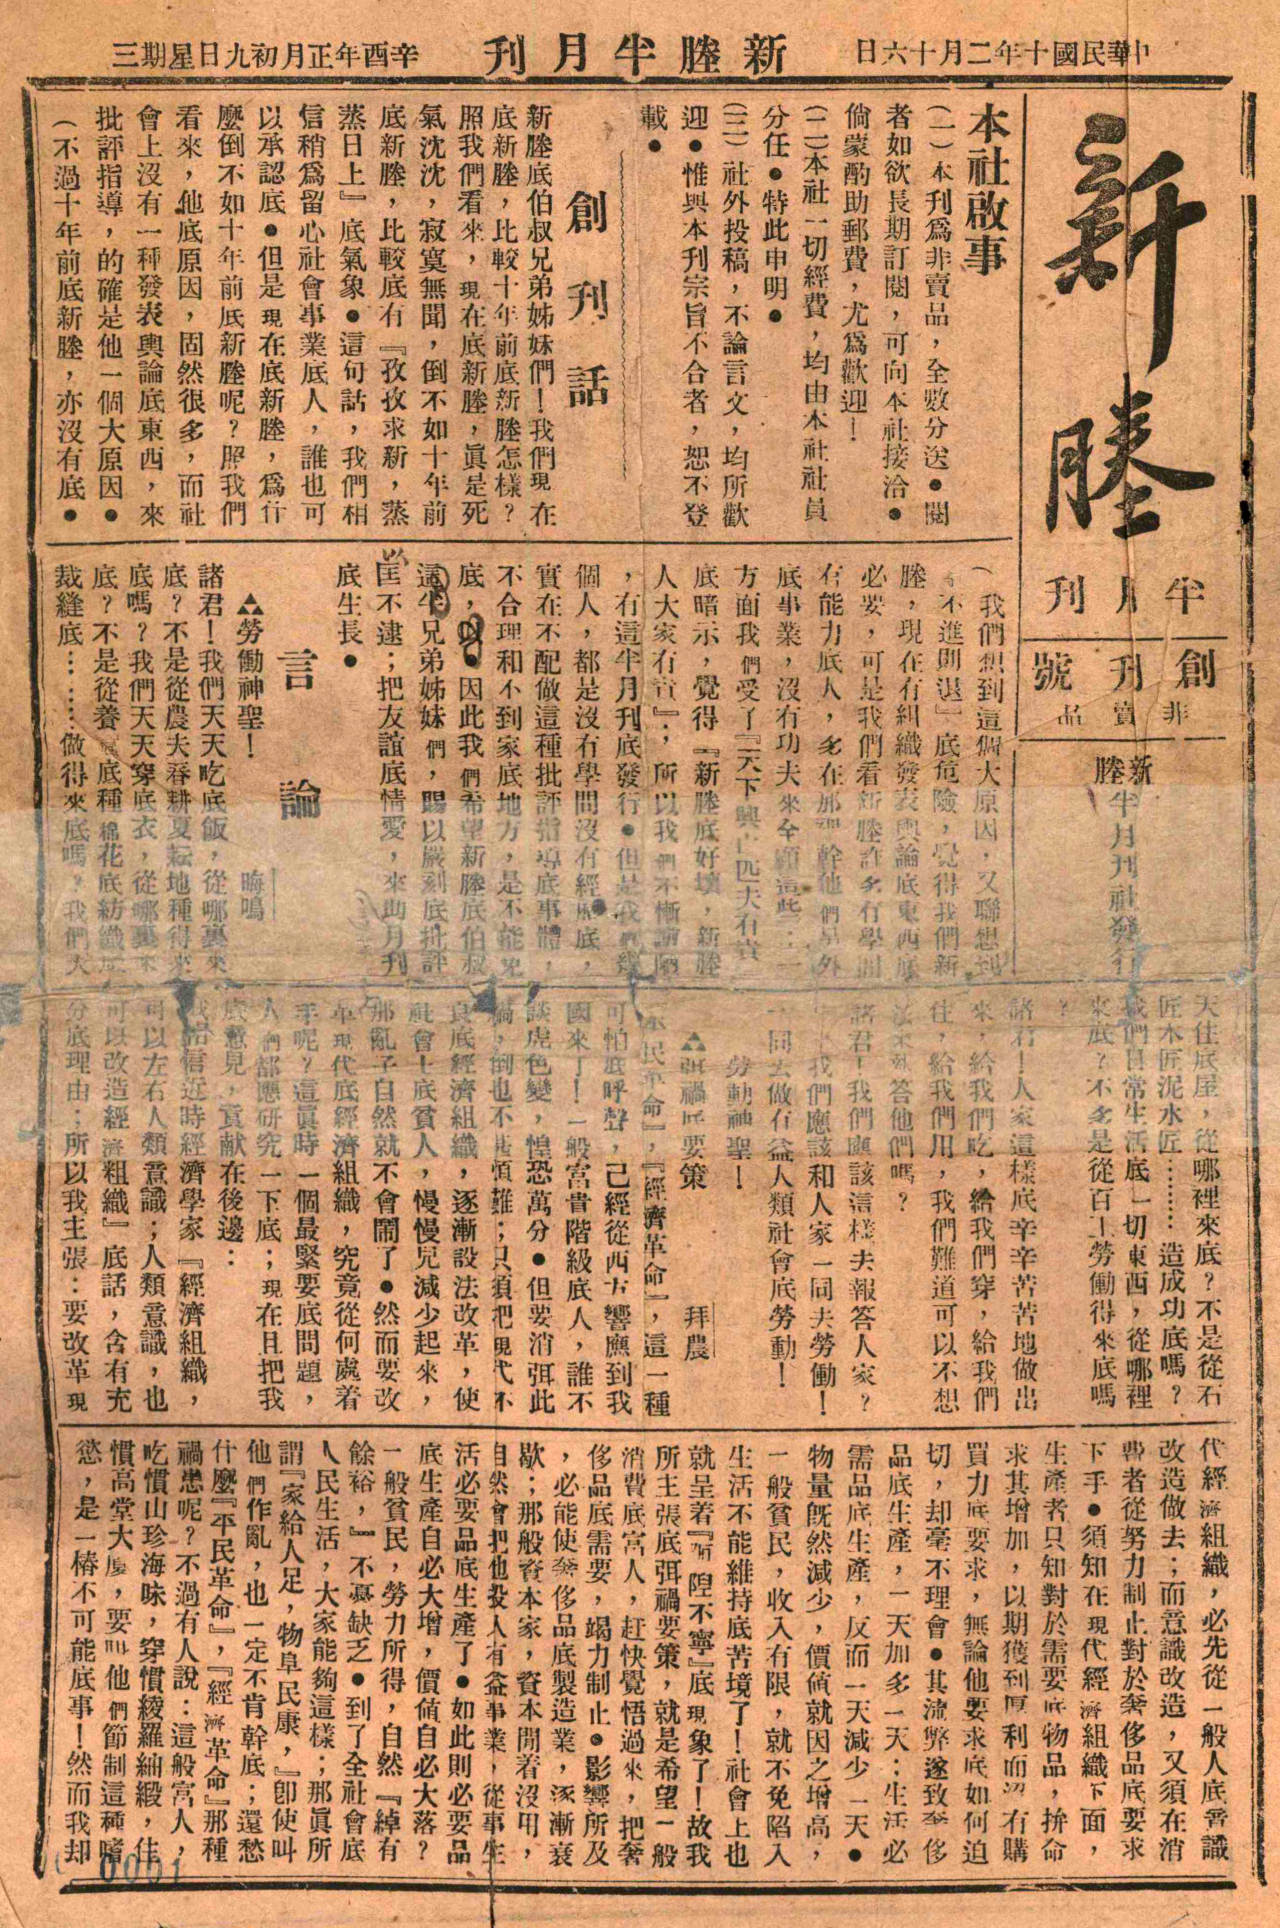 中華民國十年二月十六日
新塍半月刊
辛酉年正月初九日星期三
新塍
半月刊
創刊號
非賣品
新塍半月刊社發行
本社啟事
(一)本刊爲非賣品，全數分送●閱
者如欲長期訂閱，可向本社接洽●
倘蒙酌助郵費，尤爲歡迎！
(二)本社一切經費，均由本社社員
分任●特此申明●
(三)社外投稿，不論言文，均所歡
迎●惟與本刊宗旨不合者，恕不登
載●
創刊話
新塍底伯叔兄弟姊妹們！我們現在
底新塍，比較十年前底新塍怎樣？
照我們看來，現在底新塍，眞是死
氣沈沈，寂寞無聞，倒不如十年前
底新塍，比較底有『孜孜求新，蒸
蒸日上』底氣象●這句話，我們相
信稍爲留心社會事業底人，誰也可
以承認底●但是現在底新塍，爲什
麼倒不如十年前底新塍呢？照我們
看來，他底原因，固然很多，而社
會上沒有一種發表輿論底東西，來
批評指導，的確是他一個大原因●
(不過十年前底新塍，亦沒有底●
(我們想到這個大原因，又聯想到
不進則退』底危險，覺得我們新
塍，現在有組織發表輿論底東西底
必要，可是我們看新塍許多有學問
有能力底人，多在那裡幹他們另外
底事業，沒有功夫來全顧這些；一
方面我們受了『天下興亡匹夫有責
底暗示，覺得『新塍底好壞，新塍
人大家有責』；所以我們不慚譾陋
，有這半月刊底發行●但是我們幾
個人，都是沒有學問沒有經歷底，
實在不配做這種批評指導底事體，
不合理和不到家底地方，是不能免
底，●因此我們希望新塍底伯叔
這半兄弟姊妹們，賜以嚴刻底批評
匡不逮；把友誼底情愛，來助月刊
底生長●
言論
△勞働神聖！
晦鳴
諸君！我們天天吃底飯，從哪裏來
底？不是從農夫春耕夏耘地種得來
底嗎？我們天天穿底衣，從哪裏來
底？不是從養蠶底種棉花底紡織底
裁縫底……做得來底嗎？我們天
天住底屋，從哪裡來底？不是從石
匠木匠泥水匠………造成功底嗎？
我們日常生活底一切東西，從哪裡
來底？不多是從百工勞働得來底嗎
？
諸君！人家這樣底辛辛苦苦地做出
來，給我們吃，給我們穿，給我們
住，給我們用，我們難道可以不想
法來報答他們嗎？
諸君！我們應該這樣去報答人家？
我們應該和人家一同去勞働！
一同去做有益人類社會底勞動！
勞動神聖！
△弭禍底要策
拜農
『平民革命』，『經濟革命』，這一種
可怕底呼聲，己經從西方響應到我
國來了！一般富貴階級底人，誰不
談虎色變，惶恐萬分●但要消弭此
禍，倒也不甚煩難；只須把現代不
良底經濟組織，逐漸設法改革，使
社會上底貧人，慢慢兒減少起來，
那亂子自然就不會鬧了●然而要改
革現代底經濟組織，究竟從何處着
手呢？這眞時一個最緊要底問題，
人們都應研究一下底；現在且把我
底意見，貢獻在後邊：
我諂信近時經濟學家『經濟組織，
可以左右人類意識；人類意識，也
可以改造經濟組織』底話，含有充
分底理由；所以我主張：要改革現
代經濟組織，必先從一般人底意識
改造做去；而意識改造，又須在消
費者從努力制止對於奢侈品底要求
下手●須知在現代經濟組織下面，
生產者只知對於需要底物品，拚命
求其增加，以期獲到厚利而沒有購
買力底要求，無論他要求底如何迫
切，却毫不理會●其流弊遂致奢侈
品底生產，一天加多一天；生活必
需品底生產，反而一天減少一天●
物量旣然減少，價値就因之增高，
一般貧民，收入有限，就不免陷入
生活不能維持底苦境了！社會上也
就呈着『杌隉不寧』底現象了！故我
所主張底弭禍要策，就是希望一般
消費底富人，赶快覺悟過來，把奢
侈品底需要，竭力制止●影響所及
，必能使奢侈品底製造業，逐漸衰
歇；那般資本家，資本閒着沒用，
自然會把他投入有益事業，從事生
活必要品底生產了●如此則必要品
底生產自必大增，價値自必大落？
一般貧民，勞力所得，自然『綽有
餘裕，』不憂缺乏●到了全社會底
人民生活，大家能夠這樣；那眞所
謂『家給人足，物阜民康，』卽使叫
他們作亂，也一定不肯幹底；還愁
什麼『平民革命』，『經濟革命』那種
禍患呢？不過有人說：這般富人，
吃慣山珍海味，穿慣綾羅紬緞，住
慣高堂大廈，要叫他們節制這種嗜
慾，是一樁不可能底事！然而我却
0001